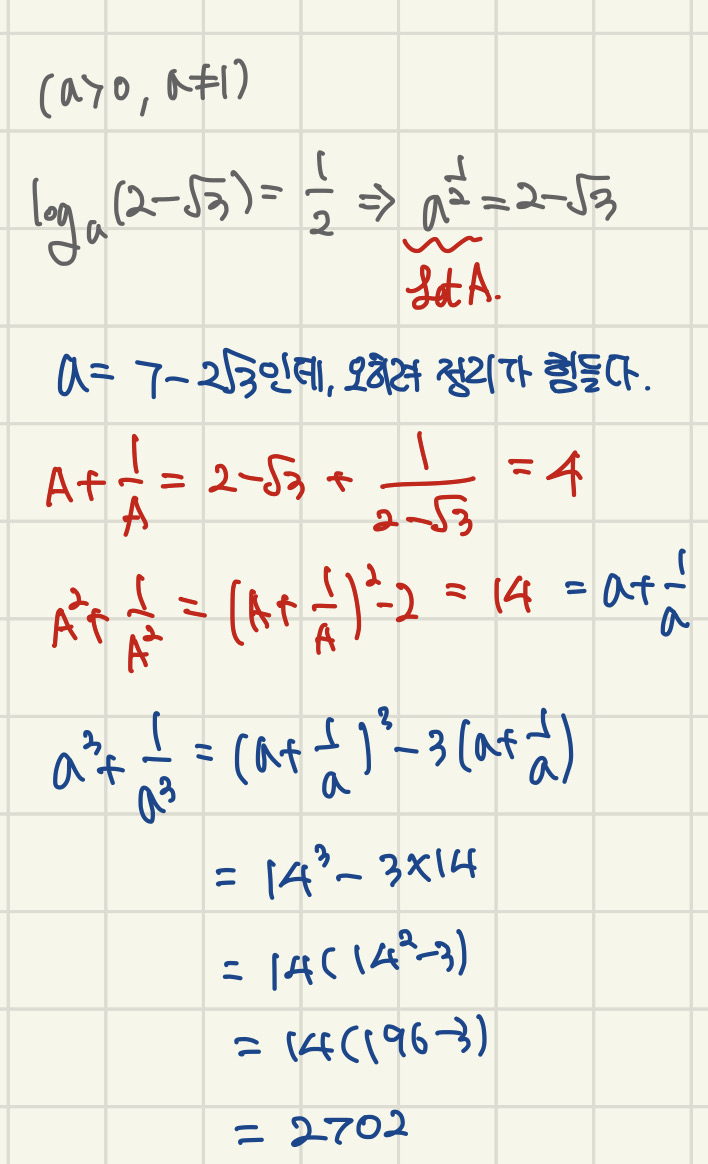 (a>0, a≠1)
log_a(2-√3) = 1/2 ⇒ a^(1/2) = 2-√3
Let A.
a = 7-2√3인데, 유리수 정리가 힘들다.
A + 1/A = 2-√3 + 1/(2-√3) = 4
A² + 1/A² = (A + 1/A)² - 2 = 14 = a + 1/a
a³ + 1/a³ = (a + 1/a)³ - 3(a + 1/a)
= 14³ - 3×14
= 14(14²-3)
= 14(196-3)
= 2702